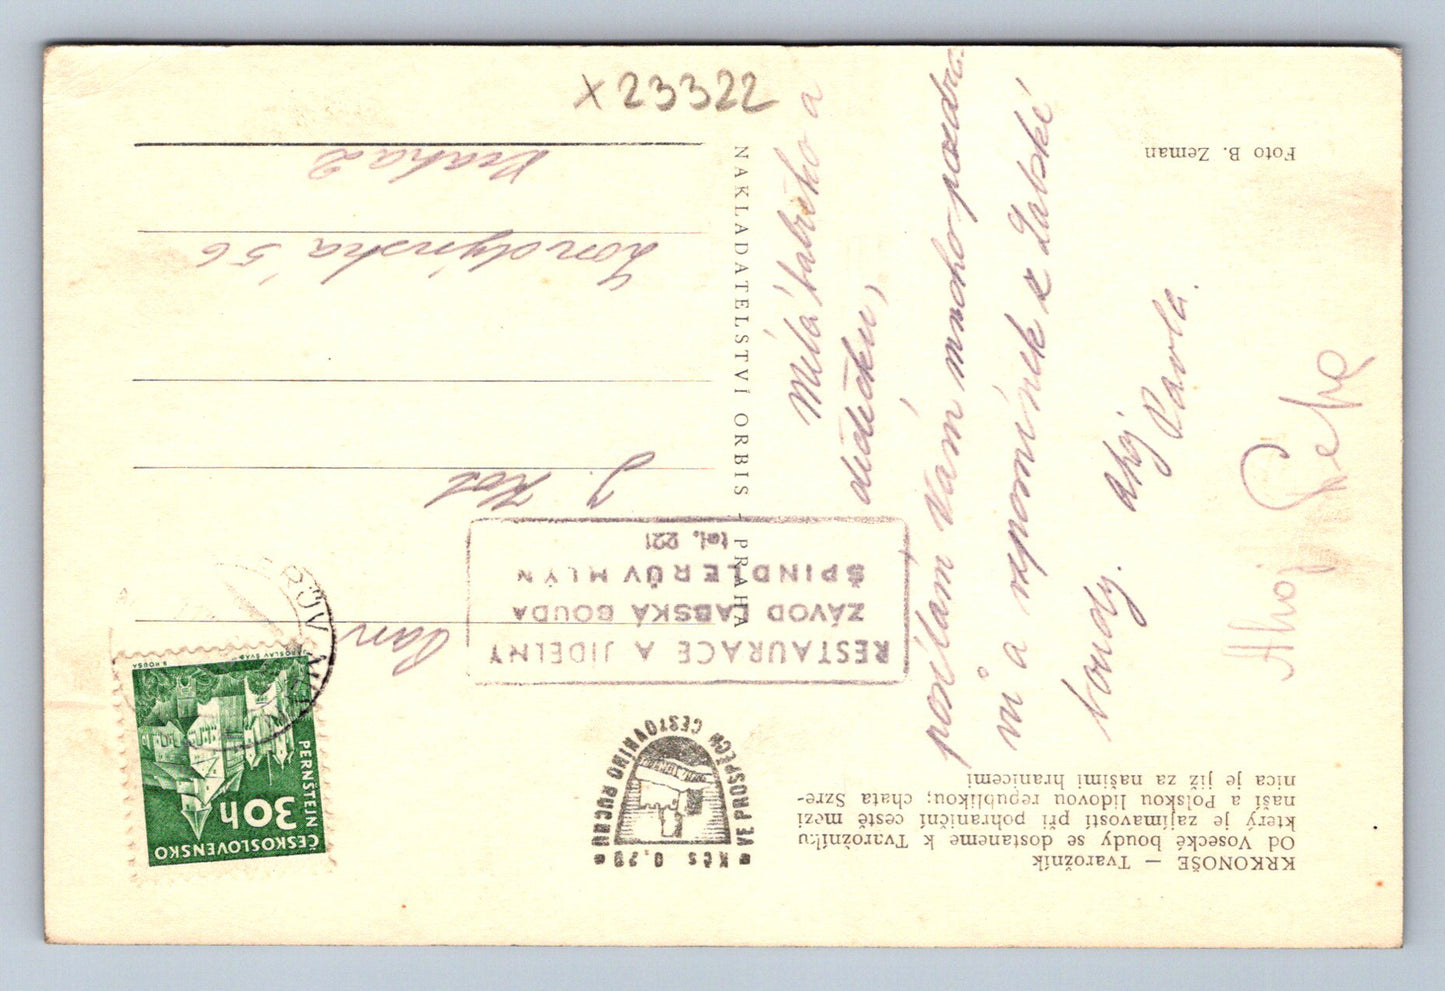 KRKONOŠE — Tvarožník
Od Vosecké boudy se dostaneme k Tvarožníku
který je zajímavostí při pohraniční cestě mezi
naší a Polskou lidovou republikou; chata Szre-
nica je již za našimi hranicemi
Milá babičko a
dědečku,
posílám Vám mnoho pozdra-
vů a vzpomínek z Labské
boudy. Ahoj
Pavla.
Ahoj
Foto B. Zeman
NAKLADATELSTVÍ ORBIS - PRAHA
Kčs 0,20
VE PROSPĚCH CESTOVNÍHO RUCHU
ČESKOSLOVENSKO
30h
PERNŠTEJN
JAROSLAV ŠVÁB
RESTAURACE A JÍDELNY
ZÁVOD LABSKÁ BOUDA
ŠPINDLERŮV MLÝN
tel. 221
Pan
J. Kot
Londýnská 56
Praha 2
x 23322